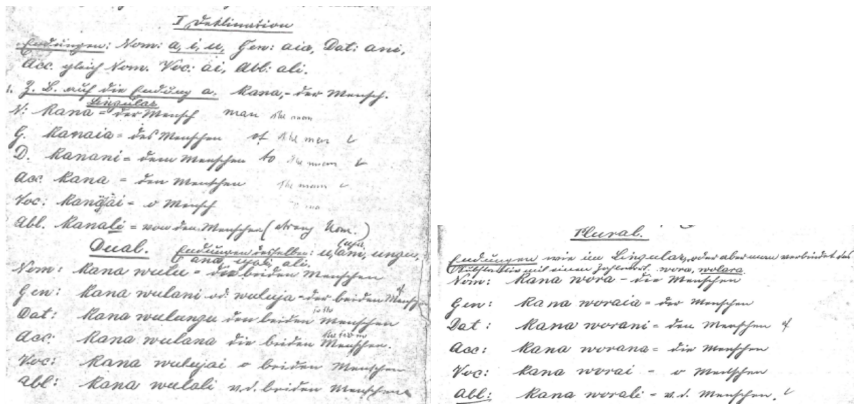 I Deklination
Endungen: Nom: a, i, u, Gen: aia, Dat: ani,
Acc. gleich Nom. Voc: ai, Abl: ali.
1. Z. B. auf die Endung a. kana, - der Mensch.
Singular
N: kana = der Mensch man the man
G. kanaia = des Menschen of the man
D. kanani = dem Menschen to the man
Acc. kana = den Menschen the man
Voc: kanajai = o Mensch
Abl. kanali = von dem Menschen
Dual. Endungen desselben: u, ani, ungu,
ana, ali
Nom: kana wulu = die beiden Menschen
Gen: kana wulani od. wuluja = der beiden Menschen
Dat: kana wulungu den beiden Menschen
Acc: kana wulana die beiden Menschen.
Voc: kana wulujai = beiden Menschen
Abl: kana wulali v.d. beiden Menschen
Plural.
Endungen wie im Singular, oder aber man verbindet das
mit einem Zahlwort. wora, wolara
Nom: kana wora = die Menschen
Gen: kana woraia = der Menschen
Dat: kana worani = den Menschen
Acc: kana worana = die Menschen
Voc: kana worai = o Menschen
Abl: kana worali = v.d. Menschen.